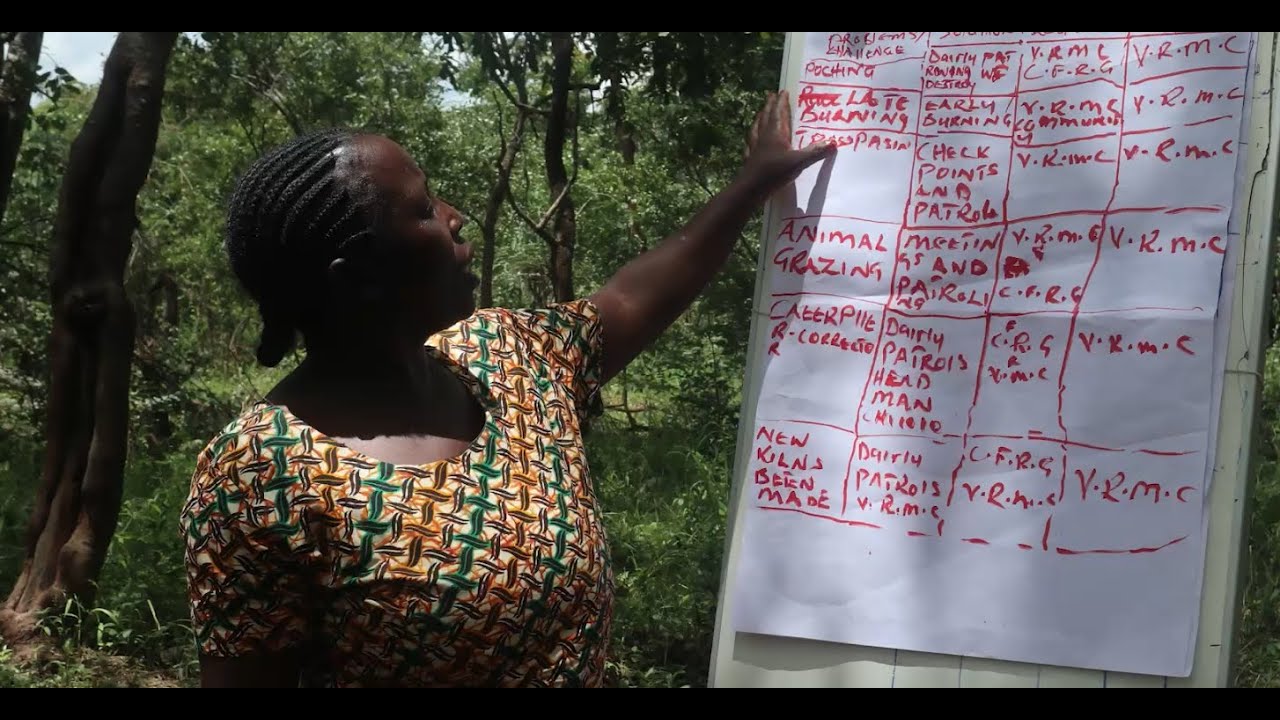 PROBLEMS/
CHALLENGE
POCHING
DAIRLY PAT
ROWING WE
DESTROY
V.R.M.C
C.F.R.G
V.R.M.C
LATE
BURNING
EARLY
BURNING
V.R.M.C
COMMUNIT
Y
V.R.M.C
CHECK
POINTS
AND
PATROL
V.R.M.C
V.R.M.C
ANIMAL
GRAZING
MEETIN
GS AND
PATROLI
NG
V.R.M.C
C.F.R.G
V.R.M.C
R-CORRECTO
R
DAIRLY
PATROLS
HEAD
MAN
V.M.C
V.R.M.C
NEW
KILNS
BEEN
MADE
DAIRLY
PATROLS
V.R.M.C
C.F.R.G
V.R.M.C
V.R.M.C